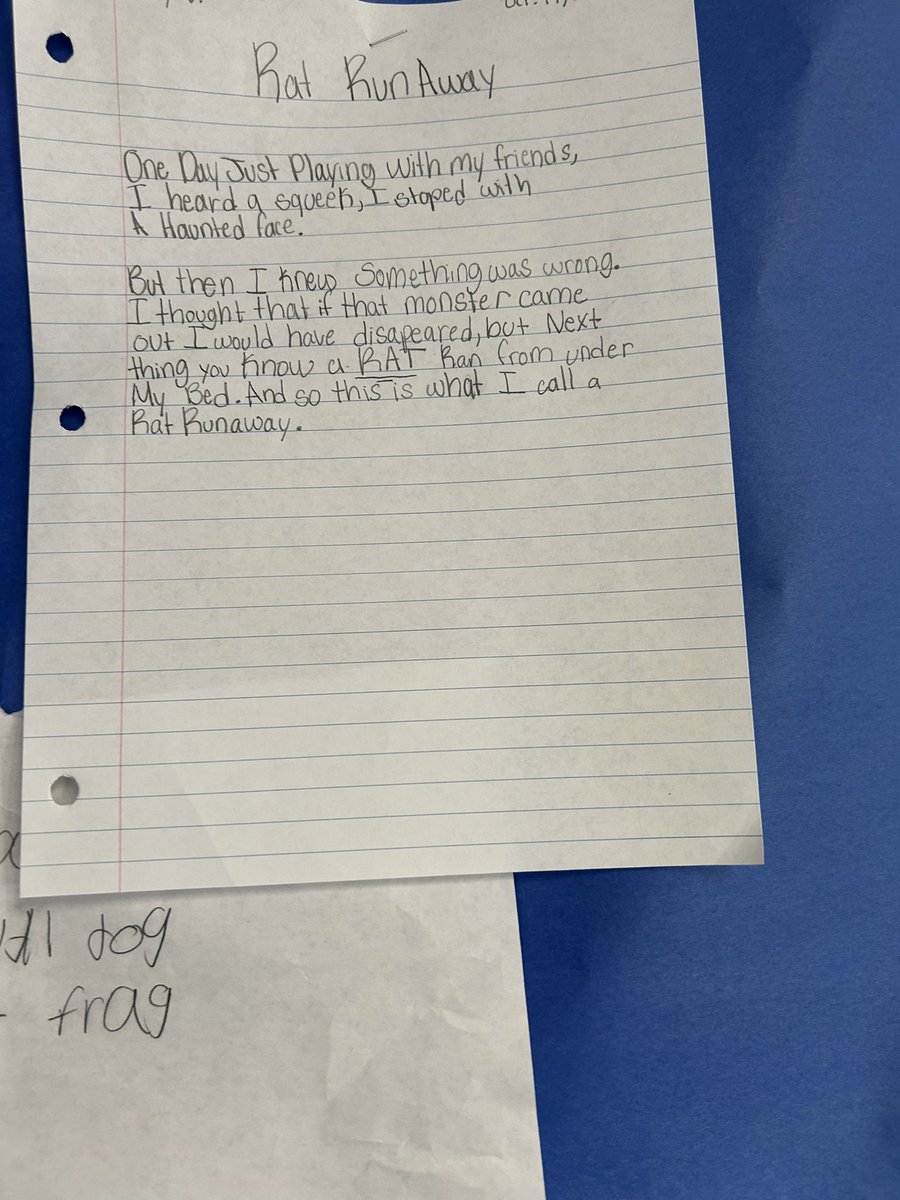 Rat RunAway
One Day Just Playing with my friends,
I heard a squeek, I stoped with
A Haunted face.
But then I knew Something was wrong.
I thought that if that monster came
out I would have disapeared, but Next
thing you know a RAT Ran from under
My Bed. And so this is what I call a
Rat Runaway.
dog
frag